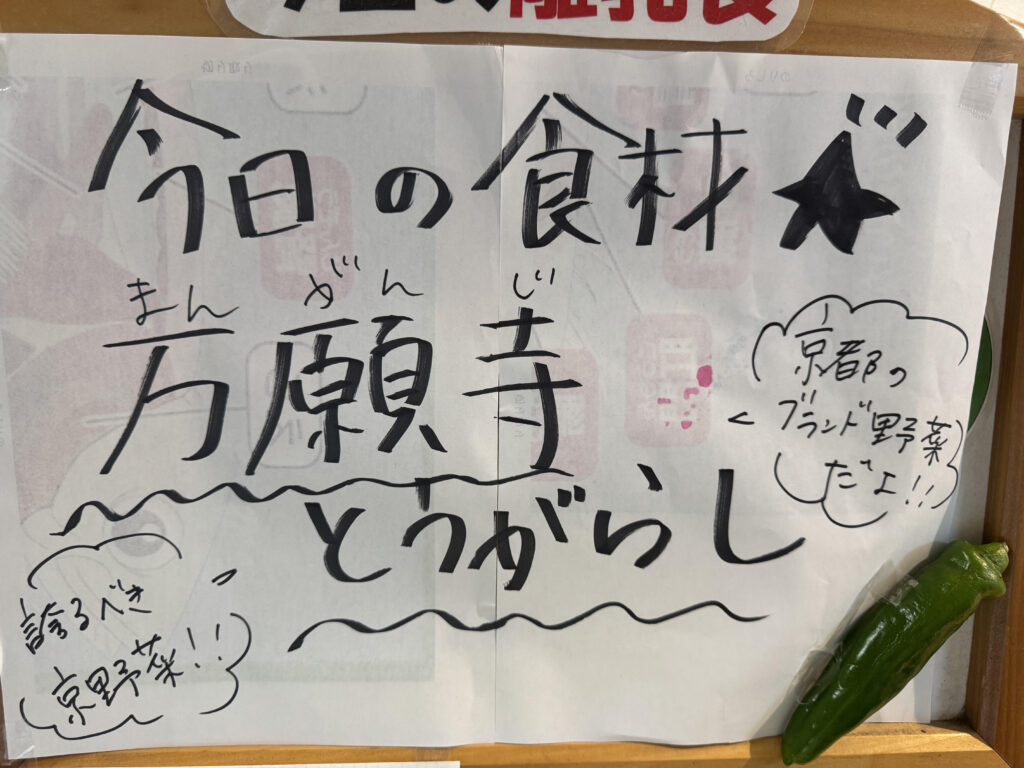 離乳食
今日の食材★
まん がん じ
万願寺
とうがらし
京都の
ブランド野菜
だよ!!
誇るべき
京野菜!!